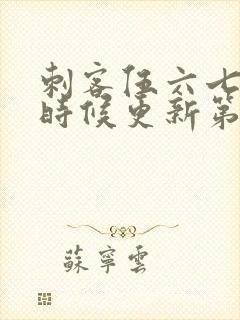 刺客伍六七
時候更新第
蘇寧雲